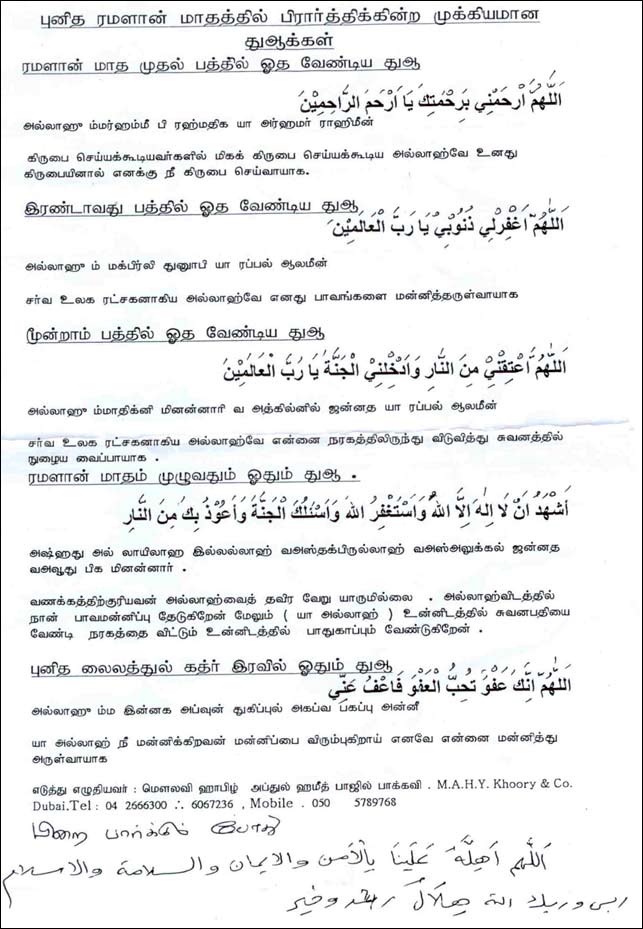 புனித ரமளான் மாதத்தில் பிரார்த்திக்கின்ற முக்கியமான
துஆக்கள்
ரமளான் மாத முதல் பத்தில் ஓத வேண்டிய துஆ
اَللّٰهُمَّ ارْحَمْنِي بِرَحْمَتِكَ يَا اَرْحَمَ الرَّاحِمِيْنَ
அல்லாஹு ம்மர்ஹம்மீ பி ரஹ்மதிக யா அர்ஹமர் ராஹிமீன்
கிருபை செய்யக்கூடியவர்களில் மிகக் கிருபை செய்யக்கூடிய அல்லாஹ்வே உனது
கிருபையினால் எனக்கு நீ கிருபை செய்வாயாக.
இரண்டாவது பத்தில் ஓத வேண்டிய துஆ
اَللّٰهُمَّ اغْفِرْلِي ذُنُوْبِيْ يَا رَبَّ الْعَالَمِيْنَ
அல்லாஹு ம் மக்பிர்லி துனூபி யா ரப்பல் ஆலமீன்
சர்வ உலக ரட்சகனாகிய அல்லாஹ்வே எனது பாவங்களை மன்னித்தருள்வாயாக
மூன்றாம் பத்தில் ஓத வேண்டிய துஆ
اَللّٰهُمَّ اَعْتِقْنِيْ مِنَ النَّارِ وَاَدْخِلْنِيْ الْجَنَّةَ يَا رَبَّ الْعَالَمِيْنَ
அல்லாஹு ம்மாதிக்னி மினன்னாரி வ அத்கில்னில் ஜன்னத யா ரப்பல் ஆலமீன்
சர்வ உலக ரட்சகனாகிய அல்லாஹ்வே என்னை நரகத்திலிருந்து விடுவித்து சுவனத்தில்
நுழைய வைப்பாயாக .
ரமளான் மாதம் முழுவதும் ஓதும் துஆ .
اَشْهَدُ اَنْ لَا اِلٰهَ اِلَّا اللهُ وَاَسْتَغْفِرُ اللهَ وَاَسْئَلُكَ الْجَنَّةَ وَاَعُوْذُ بِكَ مِنَ النَّارِ
அஷ்ஹது அல் லாயிலாஹ இல்லல்லாஹ் வஅஸ்தக்பிருல்லாஹ் வஅஸ்அலுக்கல் ஜன்னத
வஅவூது பிக மினன்னார் .
வணக்கத்திற்குரியவன் அல்லாஹ்வைத் தவிர வேறு யாருமில்லை . அல்லாஹ்விடத்தில்
நான் பாவமன்னிப்பு தேடுகிறேன் மேலும் ( யா அல்லாஹ் ) உன்னிடத்தில் சுவனபதியை
வேண்டி நரகத்தை விட்டும் உன்னிடத்தில் பாதுகாப்பும் வேண்டுகிறேன் .
புனித லைலத்துல் கத்ர் இரவில் ஓதும் துஆ
اَللّٰهُمَّ اِنَّكَ عَفُوٌّ تُحِبُّ الْعَفْوَ فَاعْفُ عَنِّي
அல்லாஹு ம்ம இன்னக அப்வுன் துகிப்புல் அகப்வ பகப்பு அன்னீ
யா அல்லாஹ் நீ மன்னிக்கிறவன் மன்னிப்பை விரும்புகிறாய் எனவே என்னை மன்னித்து
அருள்வாயாக
எடுத்து எழுதியவர் : மௌலவி ஹாபிழ் அப்துல் ஹமீத் பாஜில் பாக்கவி . M.A.H.Y. Khoory & Co.
Dubai.Tel : 04 2666300 ∴ 6067236 , Mobile . 050 5789768
பிறை பார்க்கும் போது
اَللّٰهُمَّ اَهِلَّهُ عَلَيْنَا بِالْاَمْنِ وَالْاِيمَانِ وَالسَّلَامَةِ وَالْاِسْلَامِ
ربي وربك الله هِلَالُ رشد وخير